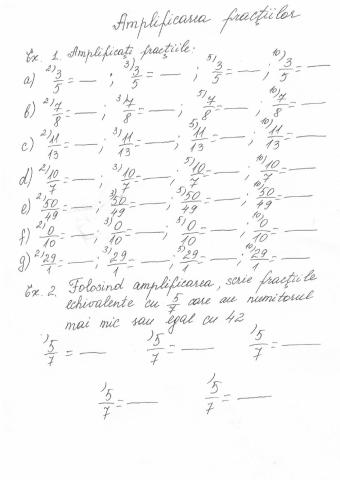 Amplificarea fracțiilor
Ex. 1. Amplificați fracțiile:
a) ²⁾3/5 = — ; ³⁾3/5 = — ; ⁵⁾3/5 = — ; ¹⁰⁾3/5 = —
b) ²⁾7/8 = — ; ³⁾7/8 = — ; ⁵⁾7/8 = — ; ¹⁰⁾7/8 = —
c) ²⁾11/13 = — ; ³⁾11/13 = — ; ⁵⁾11/13 = — ; ¹⁰⁾11/13 = —
d) ²⁾10/7 = — ; ³⁾10/7 = — ; ⁵⁾10/7 = — ; ¹⁰⁾10/7 = —
e) ²⁾50/49 = — ; ³⁾50/49 = — ; ⁵⁾50/49 = — ; ¹⁰⁾50/49 = —
f) ²⁾0/10 = — ; ³⁾0/10 = — ; ⁵⁾0/10 = — ; ¹⁰⁾0/10 = —
g) ²⁾29/1 = — ; ³⁾29/1 = — ; ⁵⁾29/1 = — ; ¹⁰⁾29/1 = —
Ex. 2. Folosind amplificarea, scrie fracțiile
echivalente cu 5/7 care au numitorul
mai mic sau egal cu 42
⁾5/7 = — ⁾5/7 = — ⁾5/7 = —
⁾5/7 = — ⁾5/7 = —